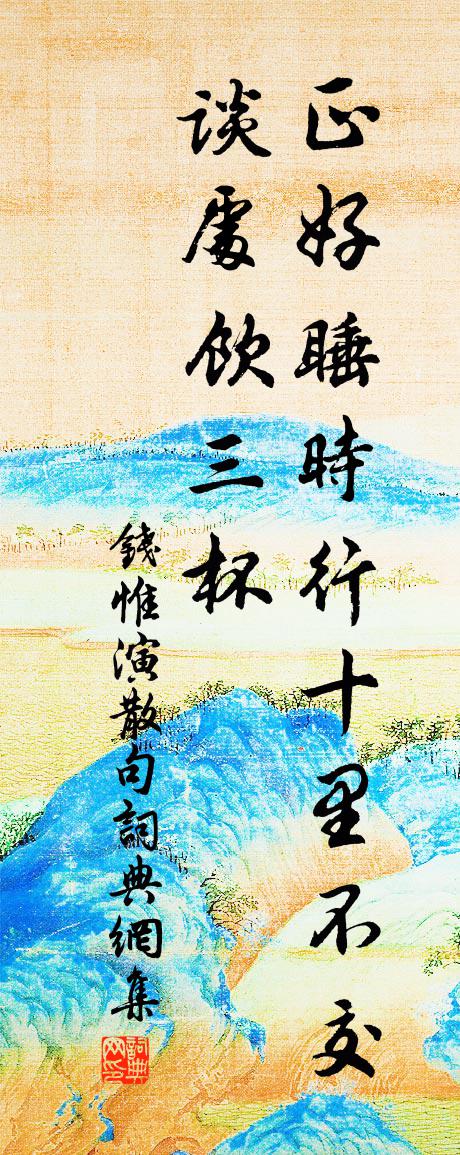 正好睡時行十里不交
談處飲三杯
錢惟演散句詞典網集
詞典網印